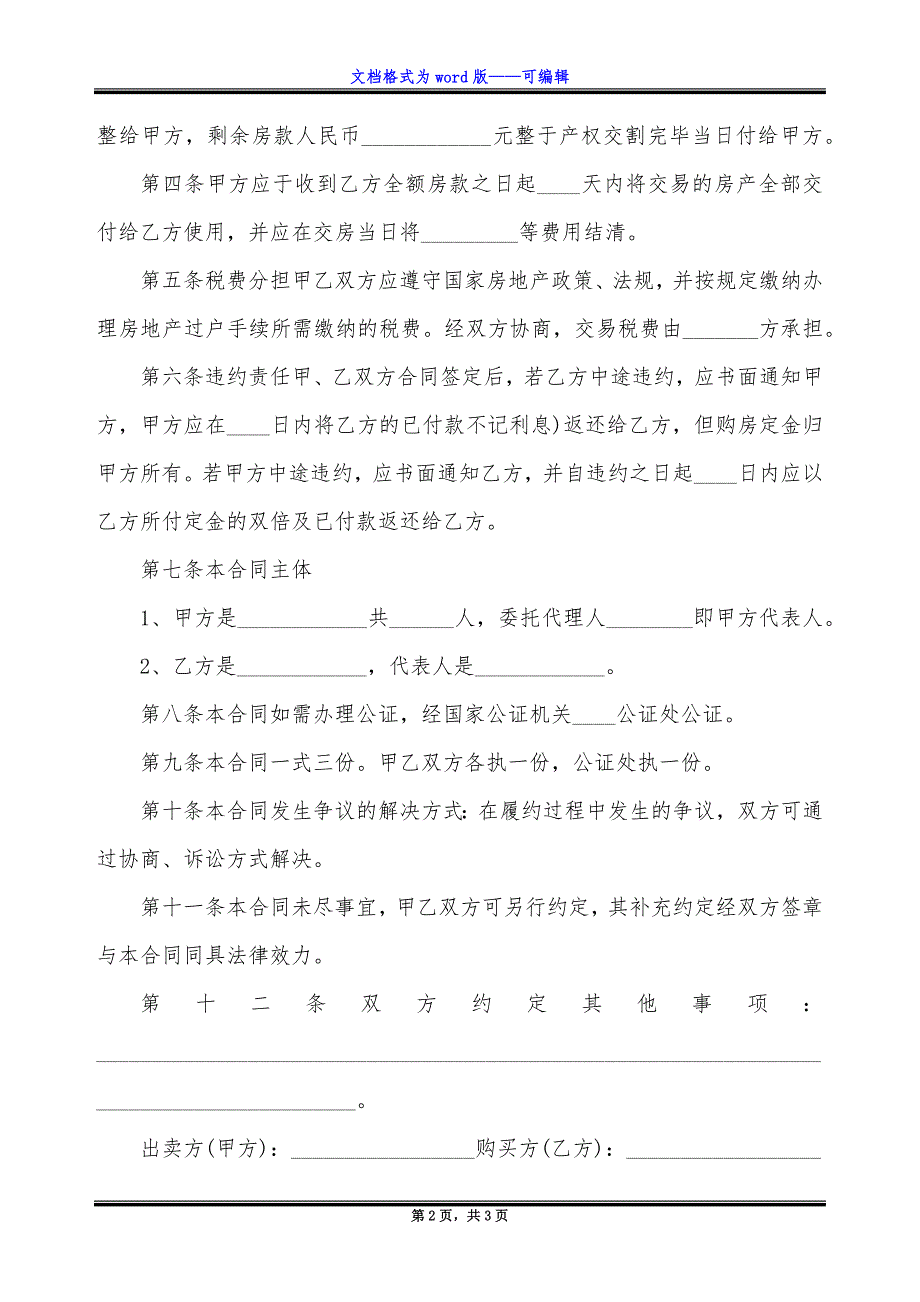 文档格式为 word 版——可编辑
整给甲方，剩余房款人民币____________元整于产权交割完毕当日付给甲方。
第四条甲方应于收到乙方全额房款之日起____天内将交易的房产全部交
付给乙方使用，并应在交房当日将_________等费用结清。
第五条税费分担甲乙双方应遵守国家房地产政策、法规，并按规定缴纳办
理房地产过户手续所需缴纳的税费。经双方协商，交易税费由_______方承担。
第六条违约责任甲、乙双方合同签定后，若乙方中途违约，应书面通知甲
方，甲方应在____日内将乙方的已付款不记利息)返还给乙方，但购房定金归
甲方所有。若甲方中途违约，应书面通知乙方，并自违约之日起____日内应以
乙方所付定金的双倍及已付款返还给乙方。
第七条本合同主体
1、甲方是____________共______人，委托代理人________即甲方代表人。
2、乙方是____________，代表人是____________。
第八条本合同如需办理公证，经国家公证机关____公证处公证。
第九条本合同一式三份。甲乙双方各执一份，公证处执一份。
第十条本合同发生争议的解决方式：在履约过程中发生的争议，双方可通
过协商、诉讼方式解决。
第十一条本合同未尽事宜，甲乙双方可另行约定，其补充约定经双方签章
与本合同同具法律效力。
第十二条双方约定其他事项：
___________________________________________________________________
________________________。
出卖方(甲方)：_________________购买方(乙方)：__________________
第 2 页，共 3 页